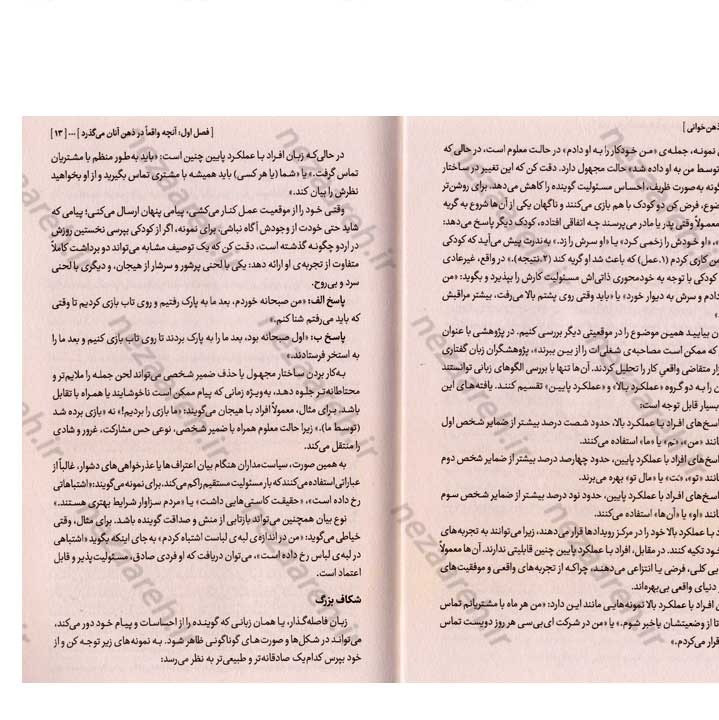 ذهن‌خوانی ]
نمونه، جمله‌ی «من خودکار را به او دادم» در حالت معلوم است، در حالی که
توسط من به او داده شد» حالت مجهول دارد. دقت کن که این تغییر در ساختار
گونه به‌صورت ظریف، احساس مسئولیت گوینده را کاهش می‌دهد. برای روشن‌تر
ضوع، فرض کن دو کودک با هم بازی می‌کنند و ناگهان یکی از آن‌ها شروع به گریه
معمولاً وقتی پدر یا مادر می‌پرسند چه اتفاقی افتاده، کودک دیگر پاسخ می‌دهد:
«او خودش را زخمی کرد» یا «او سرش را زد.» به‌ندرت پیش می‌آید که کودکی
من کاری کردم (۱.عمل) که باعث شد او گریه کند (۲.نتیجه).» در واقع، غیرعادی
کودکی با توجه به خودمحوری ذاتی‌اش مسئولیت کارش را بپذیرد و بگوید: «من
دادم و سرش به دیوار خورد» یا «باید وقتی روی پشتم بالا می‌رفت، بیشتر مراقبش
»
ن بیایید همین موضوع را در موقعیتی دیگر بررسی کنیم. در پژوهشی با عنوان
که ممکن است مصاحبه‌ی شغلی‌ات را از بین ببرند»، پژوهشگران زبان گفتاری
زار متقاضی واقعی کار را تحلیل کردند. آن‌ها تنها با بررسی الگوهای زبانی توانستند
را به دو گروه «عملکرد بالا» و «عملکرد پایین» تقسیم کنند. یافته‌های این
بسیار قابل توجه است:
سخ‌های افراد با عملکرد بالا، حدود شصت درصد بیشتر از ضمایر شخص اول
انند «من»، «م» یا «ما» استفاده می‌کنند.
سخ‌های افراد با عملکرد پایین، حدود چهارصد درصد بیشتر از ضمایر شخص دوم
انند «تو»، «ت» یا «مال تو» بهره می‌برند.
سخ‌های افراد با عملکرد پایین، حدود نود درصد بیشتر از ضمایر شخص سوم
انند «او» یا «آن‌ها» استفاده می‌کنند.
با عملکرد بالا خود را در مرکز رویدادها قرار می‌دهند، زیرا می‌توانند به تجربه‌های
خود تکیه کنند. در مقابل، افراد با عملکرد پایین چنین قابلیتی ندارند. آن‌ها معمولاً
یی کلی، فرضی یا انتزاعی می‌دهند، چراکه از تجربه‌های واقعی و موفقیت‌های
دنیای واقعی بی‌بهره‌اند.
ی افراد با عملکرد بالا نمونه‌هایی مانند این دارد: «من هر ماه با مشتریانم تماس
تا از وضعیتشان باخبر شوم.» یا «من در شرکت ای‌بی‌سی هر روز دویست تماس
قرار می‌کردم.»
[ فصل اول: آنچه واقعاً در ذهن آنان می‌گذرد ] ... [ ۱۳ ]
در حالی‌که زبان افراد با عملکرد پایین چنین است: «باید به‌طور منظم با مشتریان
تماس گرفت.» یا «شما (یا هر کسی) باید همیشه با مشتری تماس بگیرید و از او بخواهید
نظرش را بیان کند.»
وقتی خود را از موقعیت عمل کنار می‌کشی، پیامی پنهان ارسال می‌کنی؛ پیامی که
شاید حتی خودت از وجودش آگاه نباشی. برای نمونه، اگر از کودکی بپرسی نخستین روزش
در اردو چگونه گذشته است، دقت کن که یک توصیف مشابه می‌تواند دو برداشت کاملاً
متفاوت از تجربه‌ی او ارائه دهد: یکی با لحنی پرشور و سرشار از هیجان، و دیگری با لحنی
سرد و بی‌روح.
پاسخ الف: «من صبحانه خوردم، بعد ما به پارک رفتیم و روی تاب بازی کردیم تا وقتی
که باید می‌رفتم شنا کنم.»
پاسخ ب: «اول صبحانه بود، بعد ما را به پارک بردند تا روی تاب بازی کنیم و بعد ما را
به استخر فرستادند.»
به‌کار بردن ساختار مجهول یا حذف ضمیر شخصی می‌تواند لحن جمله را ملایم‌تر و
محتاطانه‌تر جلوه دهد، به‌ویژه زمانی که پیام ممکن است ناخوشایند یا همراه با تقابل
باشد. برای مثال، معمولاً افراد با هیجان می‌گویند: «ما بازی را بردیم!» نه «بازی برده شد
(توسط ما).» زیرا حالت معلوم همراه با ضمیر شخصی، نوعی حس مشارکت، غرور و شادی
را منتقل می‌کند.
به همین صورت، سیاست‌مداران هنگام بیان اعتراف‌ها یا عذرخواهی‌های دشوار، غالباً از
عباراتی استفاده می‌کنند که بار مسئولیت مستقیم را کم می‌کند. برای نمونه می‌گویند: «اشتباهاتی
رخ داده است»، «حقیقت کاستی‌هایی داشت» یا «مردم سزاوار شرایط بهتری هستند.»
نوع بیان همچنین می‌تواند بازتابی از منش و صداقت گوینده باشد. برای مثال، وقتی
خیاطی می‌گوید: «من در اندازه‌ی لبه‌ی لباست اشتباه کردم» به جای اینکه بگوید «اشتباهی
در لبه‌ی لباس رخ داده است»، می‌توان دریافت که او فردی صادق، مسئولیت‌پذیر و قابل
اعتماد است.
شکاف بزرگ
زبان فاصله‌گذار، یا همان زبانی که گوینده را از احساسات و پیام خود دور می‌کند،
می‌تواند در شکل‌ها و صورت‌های گوناگونی ظاهر شود. به نمونه‌های زیر توجه کن و از
خود بپرس کدام‌یک صادقانه‌تر و طبیعی‌تر به نظر می‌رسد:
nezareh.ir